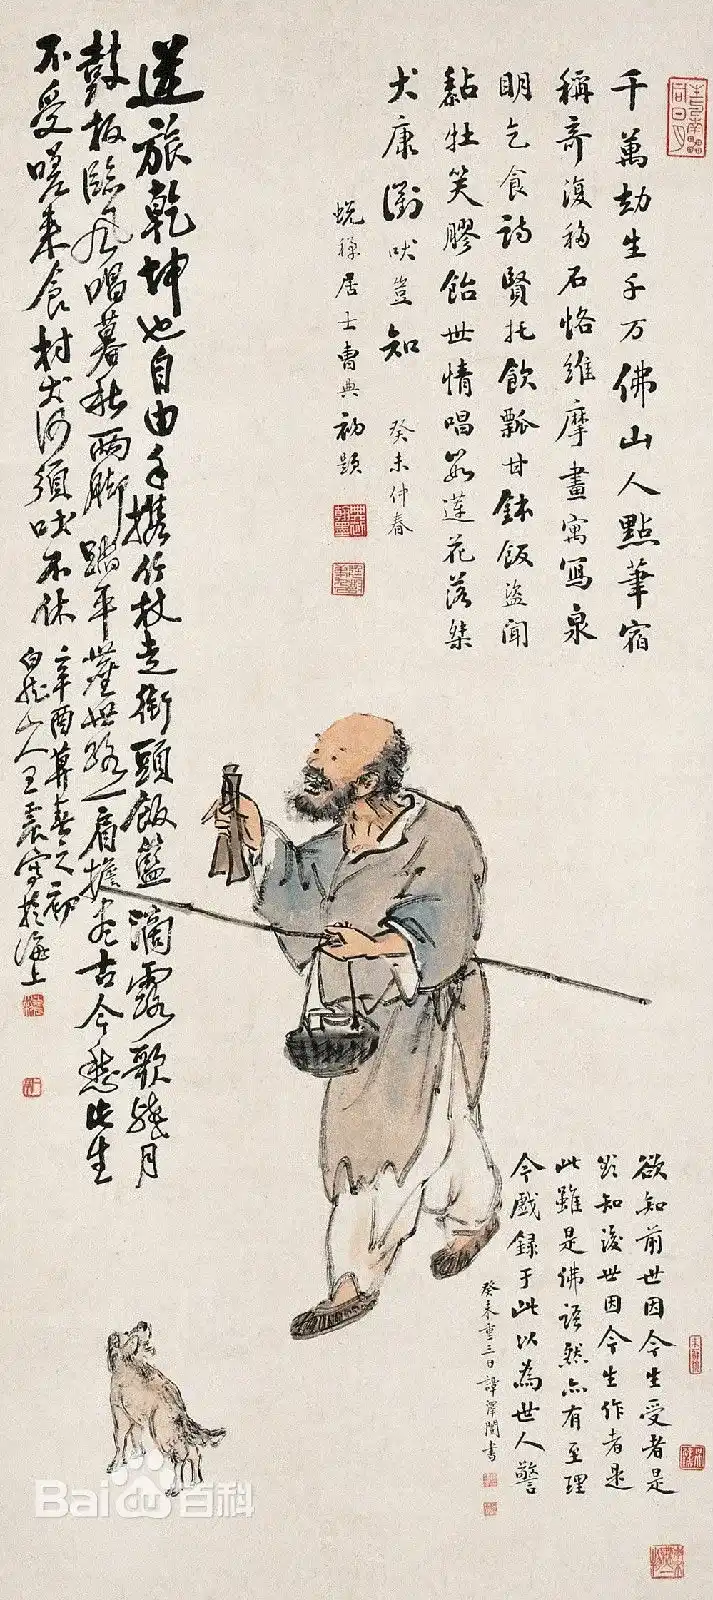 千萬劫生千万佛山人點筆宿
稱奇復稱石恪維摩畫寓寫泉
明乞食詩賢托飲瓢甘鉢飯盜聞
黏牡笑膠飴世情唱罢蓮花落桀
犬康衢吠豈知 癸未仲春
居士曹典初題
逆旅乾坤也自由手攜竹杖走街頭飯籃滴露歌殘月
鼓板臨風唱暮秋兩脚踏平塵世路一肩擔盡古今愁此生
不受嗟来食村犬何須吠不休
辛酉莫春之初
白龍山人王震寫於海上
欲知前世因今生受者是
欲知後世因今生作者是
此雖是佛語然亦有至理
今戲録于此以為世人警
癸未重三日譚澤闓書
Bai百科